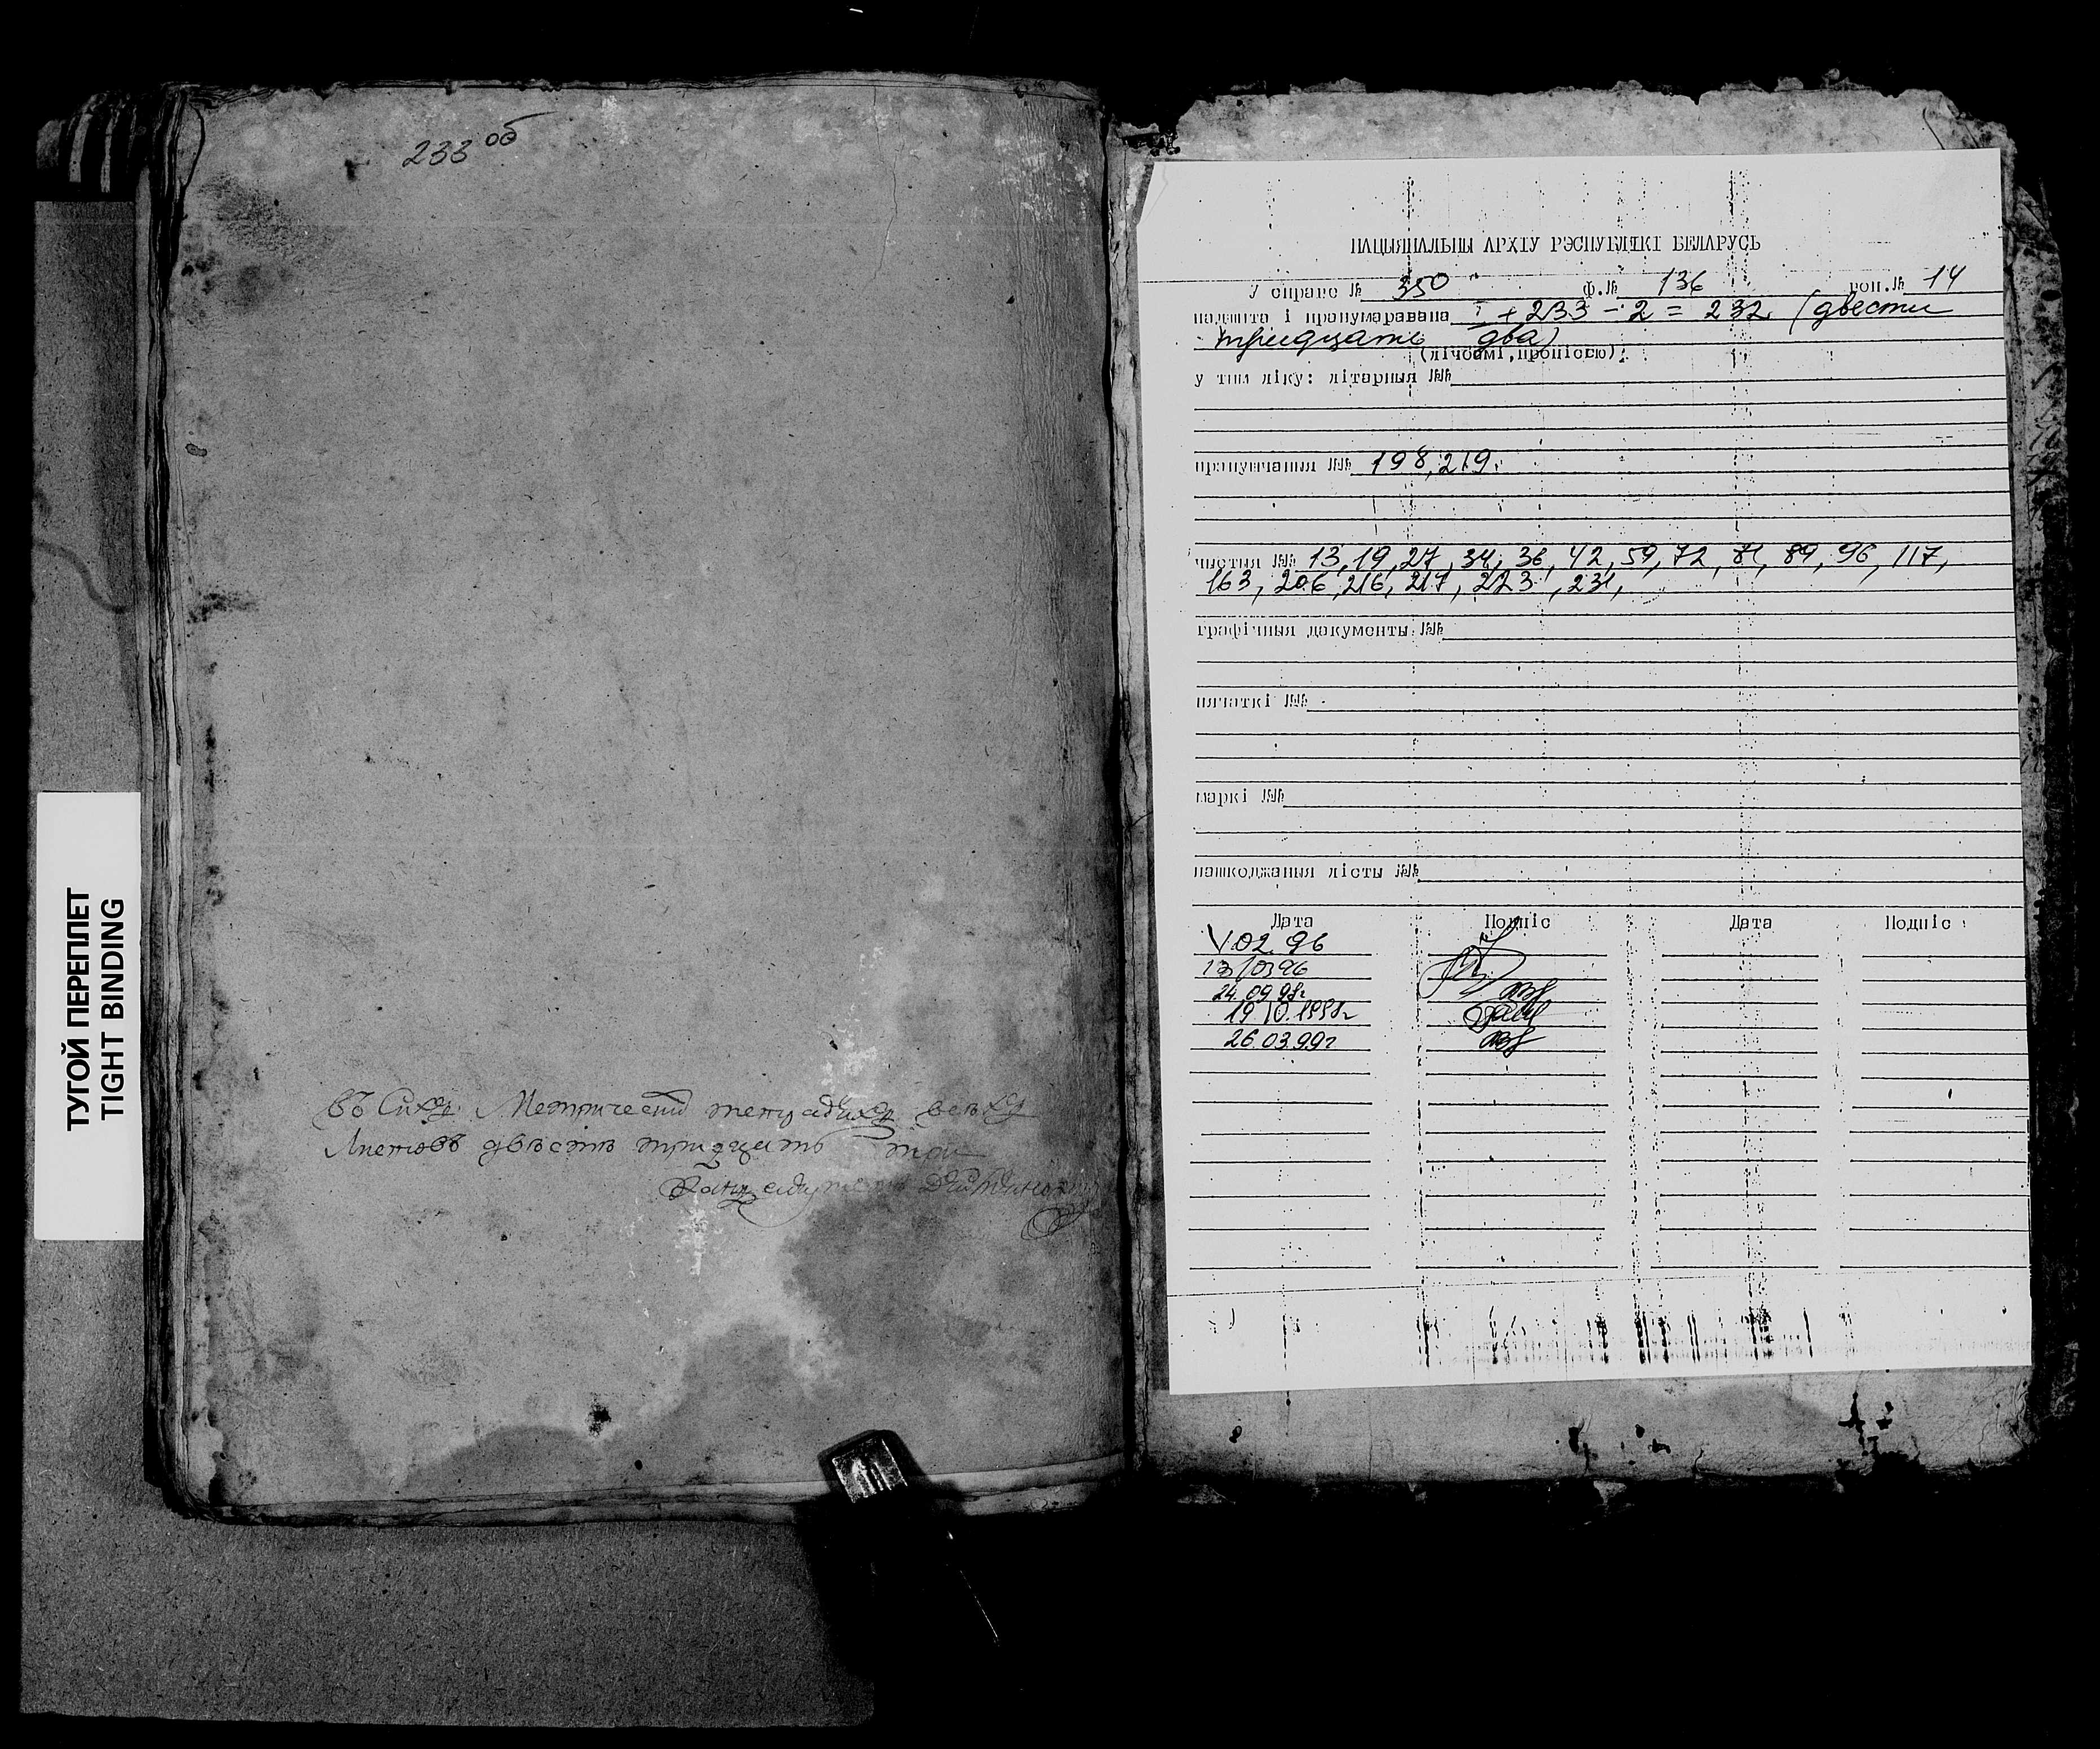 233 об
ТУГОЙ ПЕРЕПЛЕТ
TIGHT BINDING
Въ сихъ Метрическихъ тетрадяхъ всѣхъ
Листовъ двѣстѣ тридцать три
НАЦЫЯНАЛЬНЫ АРХІЎ РЭСПУБЛІКІ БЕЛАРУСЬ
У справе № 350 ф.№ 136 воп.№ 14
падшыта і пранумаравана I + 233 - 2 = 232 (двести
тридцать два)
(лічбамі, прапіссю)
у тым ліку: літарныя №№
прапушчаныя №№ 198, 219.
чыстыя №№ 13, 19, 27, 34, 36, 42, 59, 72, 81, 89, 96, 117,
163, 206, 216, 217, 223, 231,
графічныя дакументы №№
пячаткі №№
маркі №№
пашкоджаныя лісты №№
Дата Подпіс Дата Подпіс
02.96
13/0396
24.09.98г
19.10.1998г
26.03.99г